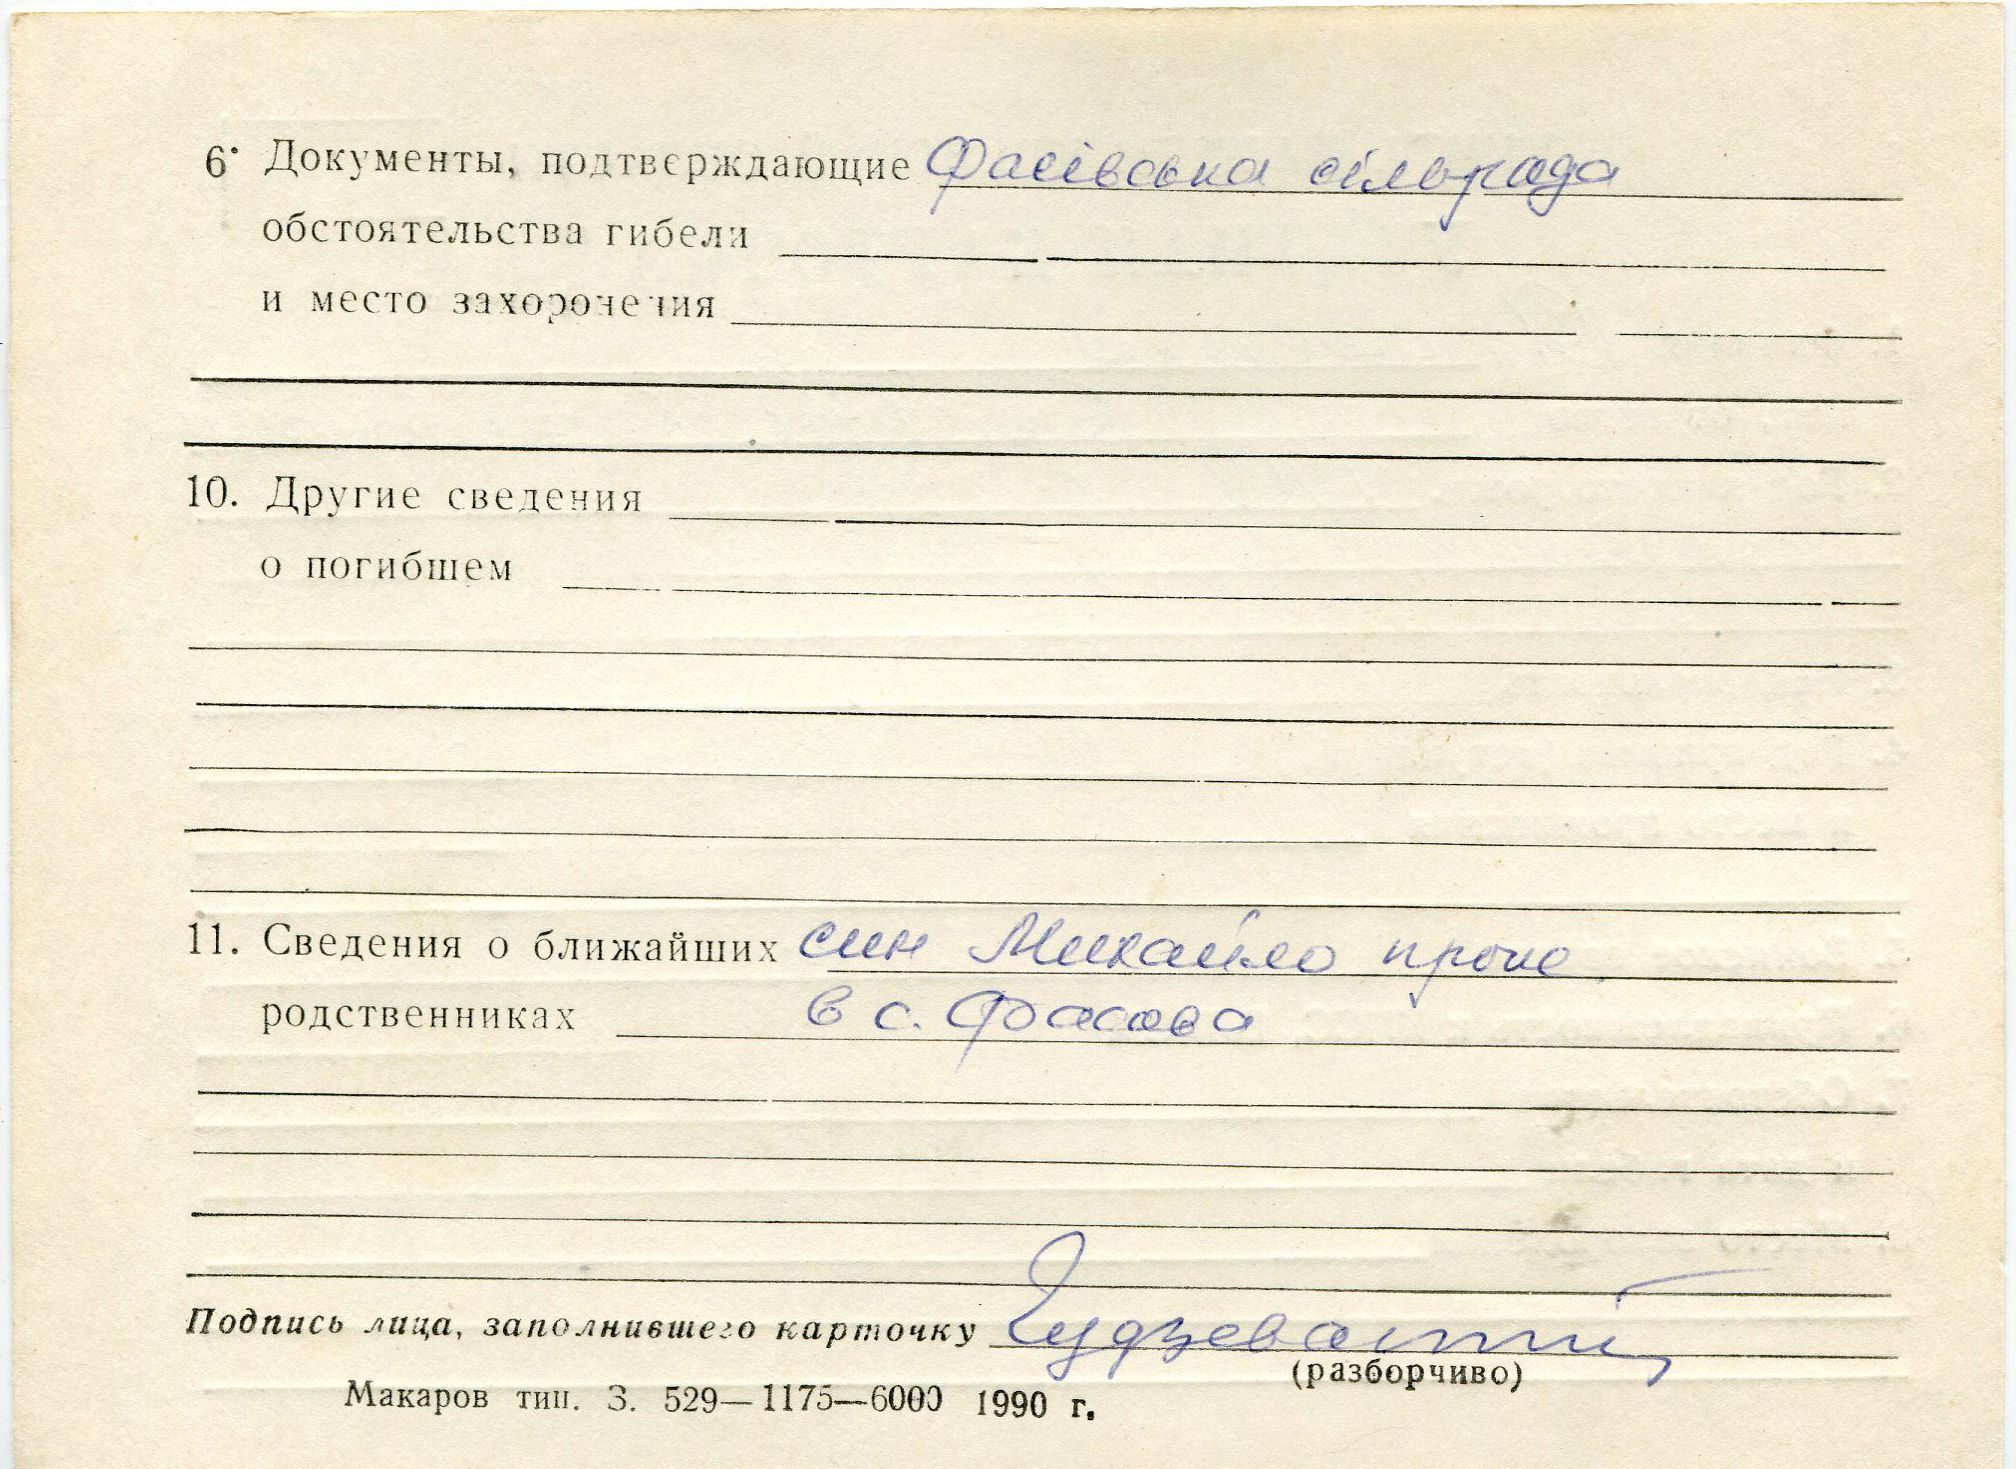 6. Документы, подтверждающие Фасівська сільрада
обстоятельства гибели
и место захоронения
10. Другие сведения
о погибшем
11. Сведения о ближайших син Михайло прож
родственниках в с. Фасова
Подпись лица, заполнившего карточку
(разборчиво)
Макаров тип. З. 529—1175—6000 1990 г.